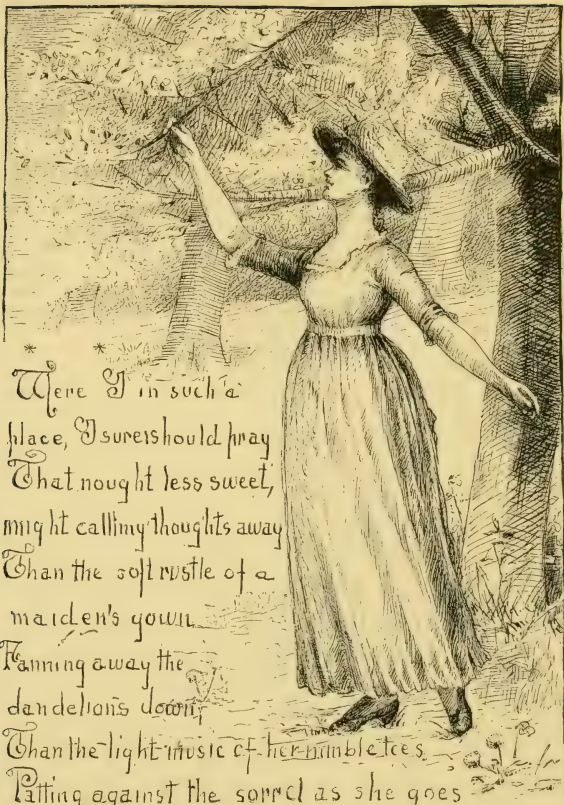 * *
Were I in such a
place, I sure should pray
That nought less sweet,
might call my thoughts away
Than the soft rustle of a
maiden's gown
Fanning away the
dandelion's down,
Than the light music of her nimble toes
Patting against the sorrel as she goes